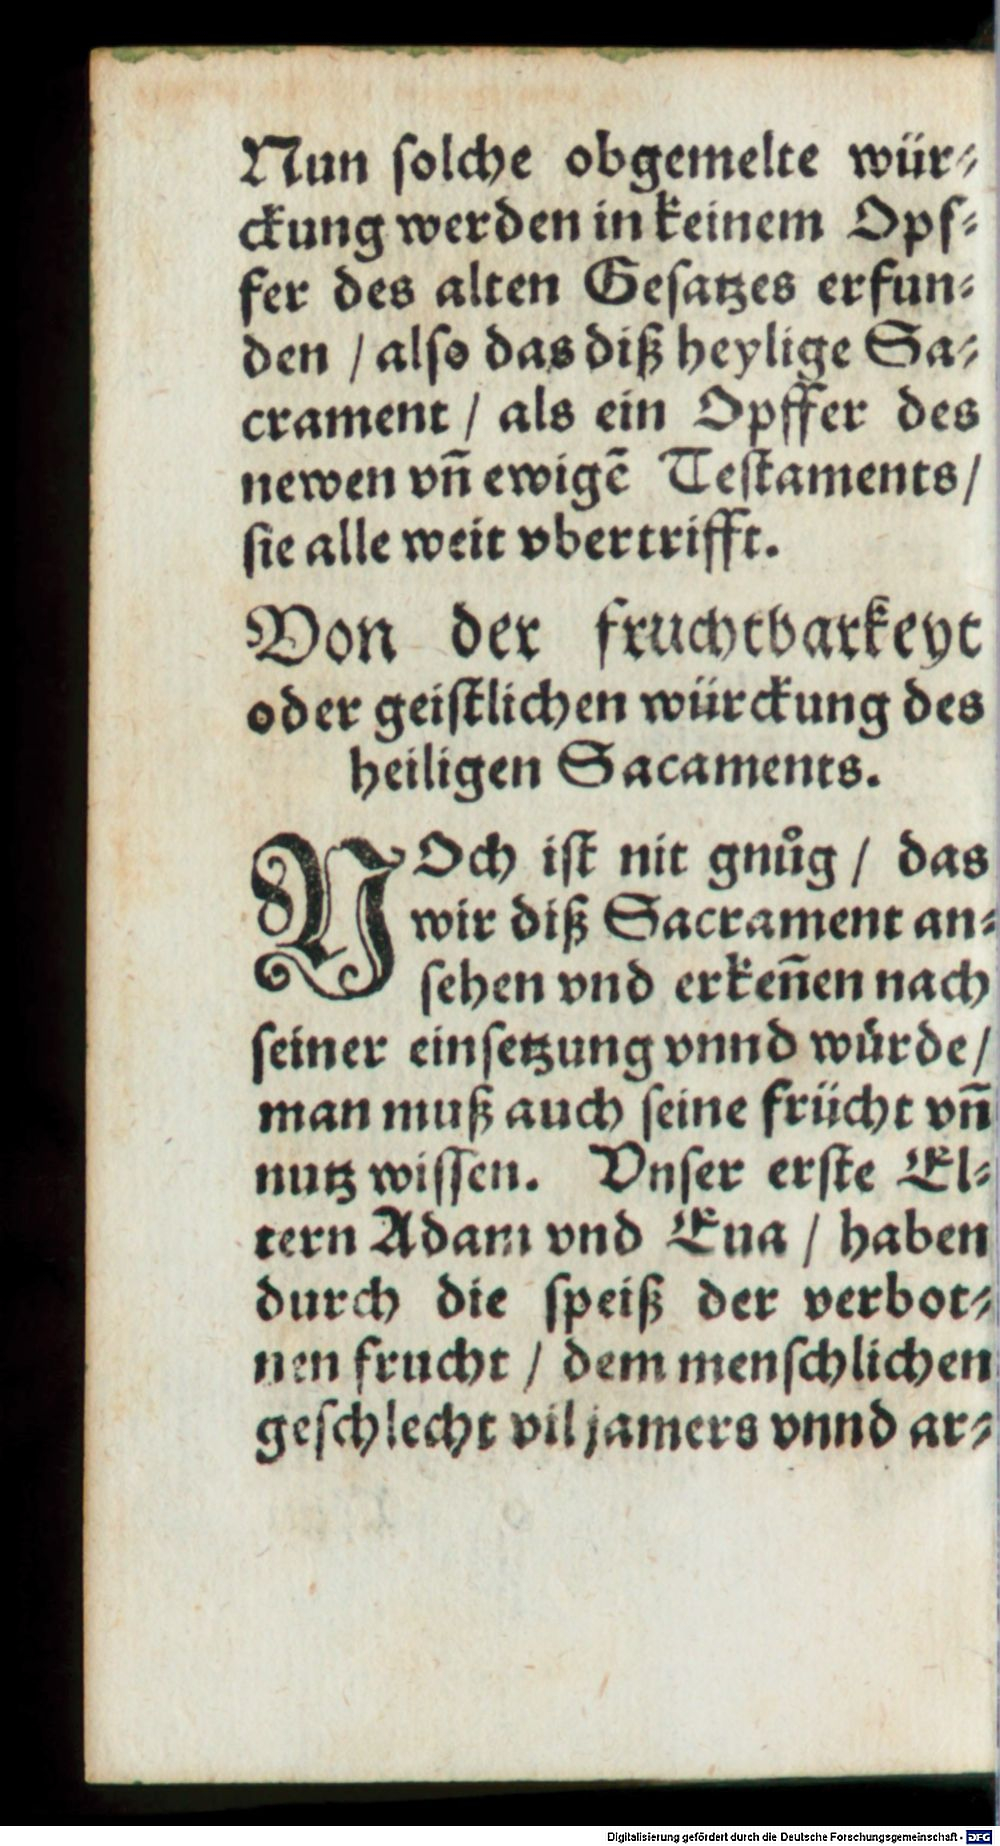 Nun ſolche obgemelte wür⸗
ckung werden in keinem Opf⸗
fer des alten Geſatzes erfun⸗
den / alſo das diß heylige Sa⸗
crament / als ein Opffer des
newen vn̄ ewigē Teſtaments /
ſie alle weit vbertrifft.
Von der fruchtbarkeyt
oder geiſtlichen würckung des
heiligen Sacaments.
NOch iſt nit gnůg / das
wir diß Sacrament an⸗
ſehen vnd erken̄en nach
ſeiner einſetzung vnnd würde /
man muß auch ſeine frücht vn̄
nutz wiſſen. Vnſer erſte El⸗
tern Adam vnd Eua / haben
durch die ſpeiß der verbot⸗
nen frucht / dem menſchlichen
geſchlecht vil jamers vnnd ar⸗
Digitalisierung gefördert durch die Deutsche Forschungsgemeinschaft - DFG